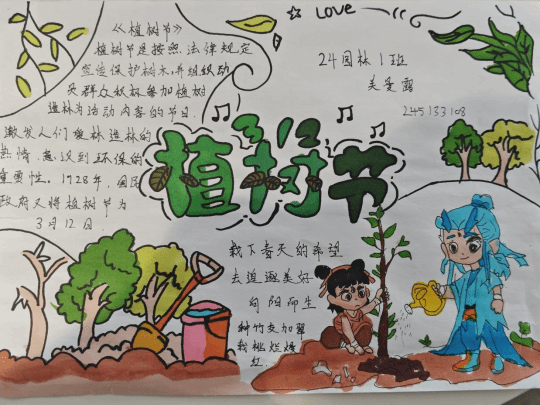 《植树节》
植树节是按照法律规定
宣传保护树木,并组织动
员群众积极参加植树
造林为活动内容的节日.
激发人们植林造林的
热情,意识到环保的
重要性。1928年,国民
政府又将植树节为
3月12日.
☆ LOVE
24园林1班
245133108
3 12
植树节
栽下春天的希望
去追逐美好
向阳而生
种竹交加翠
栽桃烂熳
红.